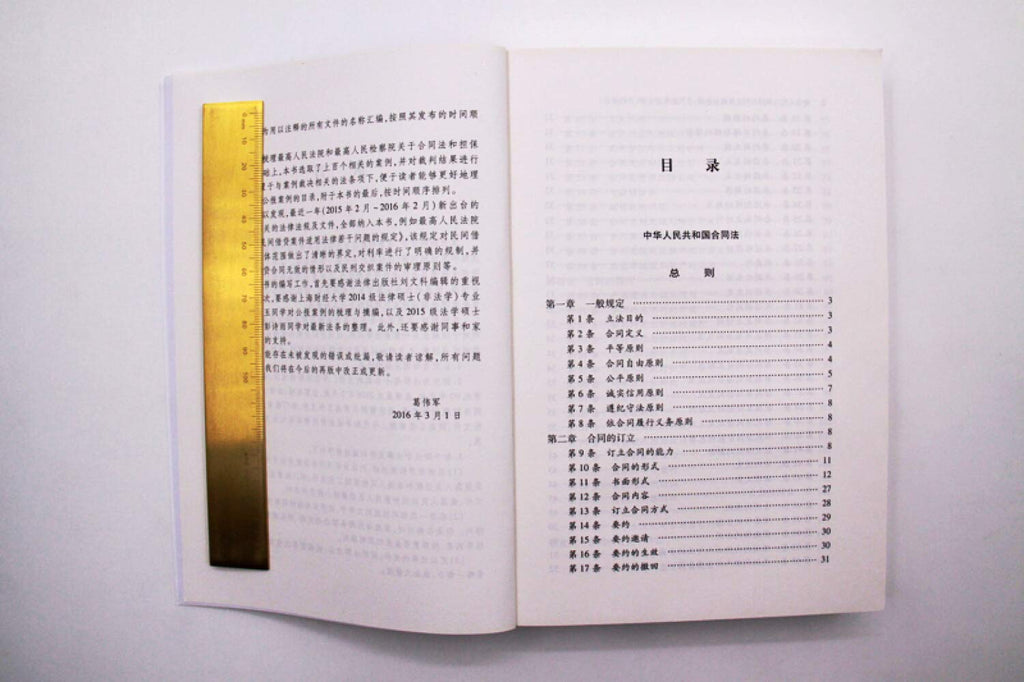 为用以注释的所有文件的名称汇编,按照其发布的时间顺
梳理最高人民法院和最高人民检察院关于合同法和担保
础上,本书选取了上百个相关的案例,并对裁判结果进行
置于与案例裁决相关的法条项下,便于读者能够更好地理
公报案例的目录,附于本书的最后,按时间顺序排列。
以发现,最近一年(2015年2月~2016年2月)新出台的
关的法律法规及文件,全部纳入本书,例如最高人民法院
民间借贷案件适用法律若干问题的规定》,该规定对民间借
体范围做出了清晰的界定,对利率进行了明确的规制,并
贷合同无效的情形以及民刑交织案件的审理原则等。
书的编写工作,首先要感谢法律出版社刘文科编辑的重视
次,要感谢上海财经大学2014级法律硕士(非法学)专业
玉同学对公报案例的梳理与摘编,以及2015级法学硕士
彭诗雨同学对最新法条的整理。此外,还要感谢同事和家
的支持。
能存在未被发现的错误或纰漏,敬请读者谅解,所有问题
我们将在今后的再版中改正或更新。
葛伟军
2016年3月1日
0 10 20 30 40 50 60 70 80 90 100
目 录
中华人民共和国合同法
总 则
第一章 一般规定 3
第1条 立法目的 3
第2条 合同定义 3
第3条 平等原则 4
第4条 合同自由原则 4
第5条 公平原则 5
第6条 诚实信用原则 7
第7条 遵纪守法原则 8
第8条 依合同履行义务原则 8
第二章 合同的订立 8
第9条 订立合同的能力 8
第10条 合同的形式 11
第11条 书面形式 12
第12条 合同内容 27
第13条 订立合同方式 28
第14条 要约 29
第15条 要约邀请 30
第16条 要约的生效 30
第17条 要约的撤回 31